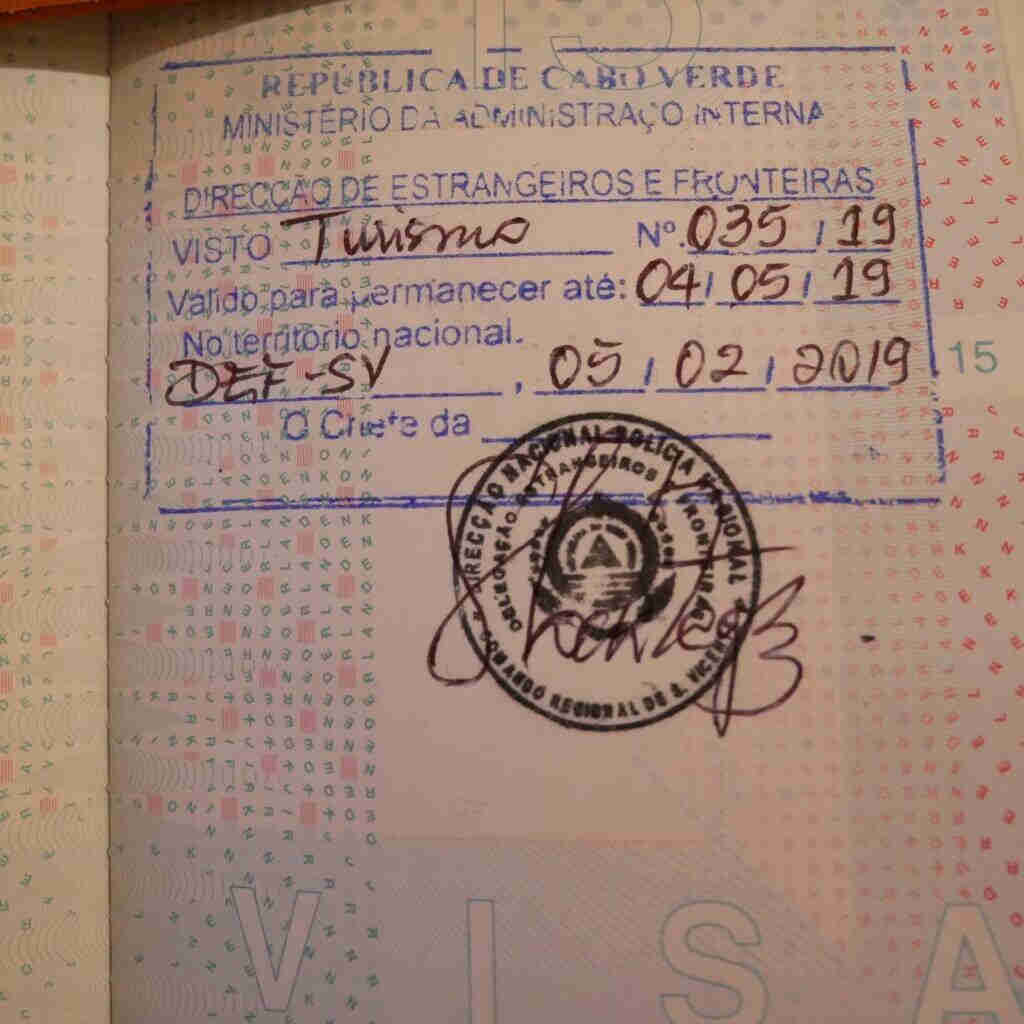 REPÚBLICA DE CABO VERDE
MINISTÉRIO DA ADMINISTRAÇO INTERNA
DIRECÇÃO DE ESTRANGEIROS E FRONTEIRAS
VISTO Turismo Nº. 035 / 19
Válido para permanecer até: 04 / 05 / 19
No território nacional.
DEF-SV, 05 / 02 / 2019
O Chefe da
DIRECÇÃO NACIONAL POLÍCIA NACIONAL
DELEGAÇÃO ESTRANGEIROS FRONTEIRAS
COMANDO REGIONAL DE S. VICENTE
15
VISA